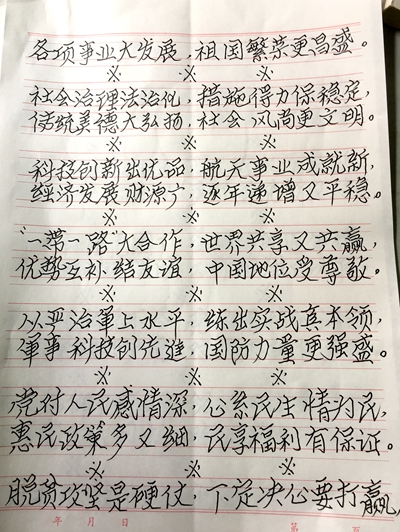 各项事业大发展，祖国繁荣更昌盛。
※ ※ ※
社会治理法治化，措施得力保稳定，
传统美德大弘扬，社会风尚更文明。
※ ※ ※
科技创新出优品，航天事业成就新，
经济发展财源广，逐年递增又平稳。
※ ※ ※
“一带一路”大合作，世界共享又共赢，
优势互补结友谊，中国地位受尊敬。
※ ※ ※
从严治军上水平，练出实战真本领，
军事科技创先进，国防力量更强盛。
※ ※ ※
党对人民感情深，心系民生情为民，
惠民政策多又细，民享福利有保证。
※ ※ ※
脱贫攻坚是硬仗，下定决心要打赢，
年 月 日 第 页